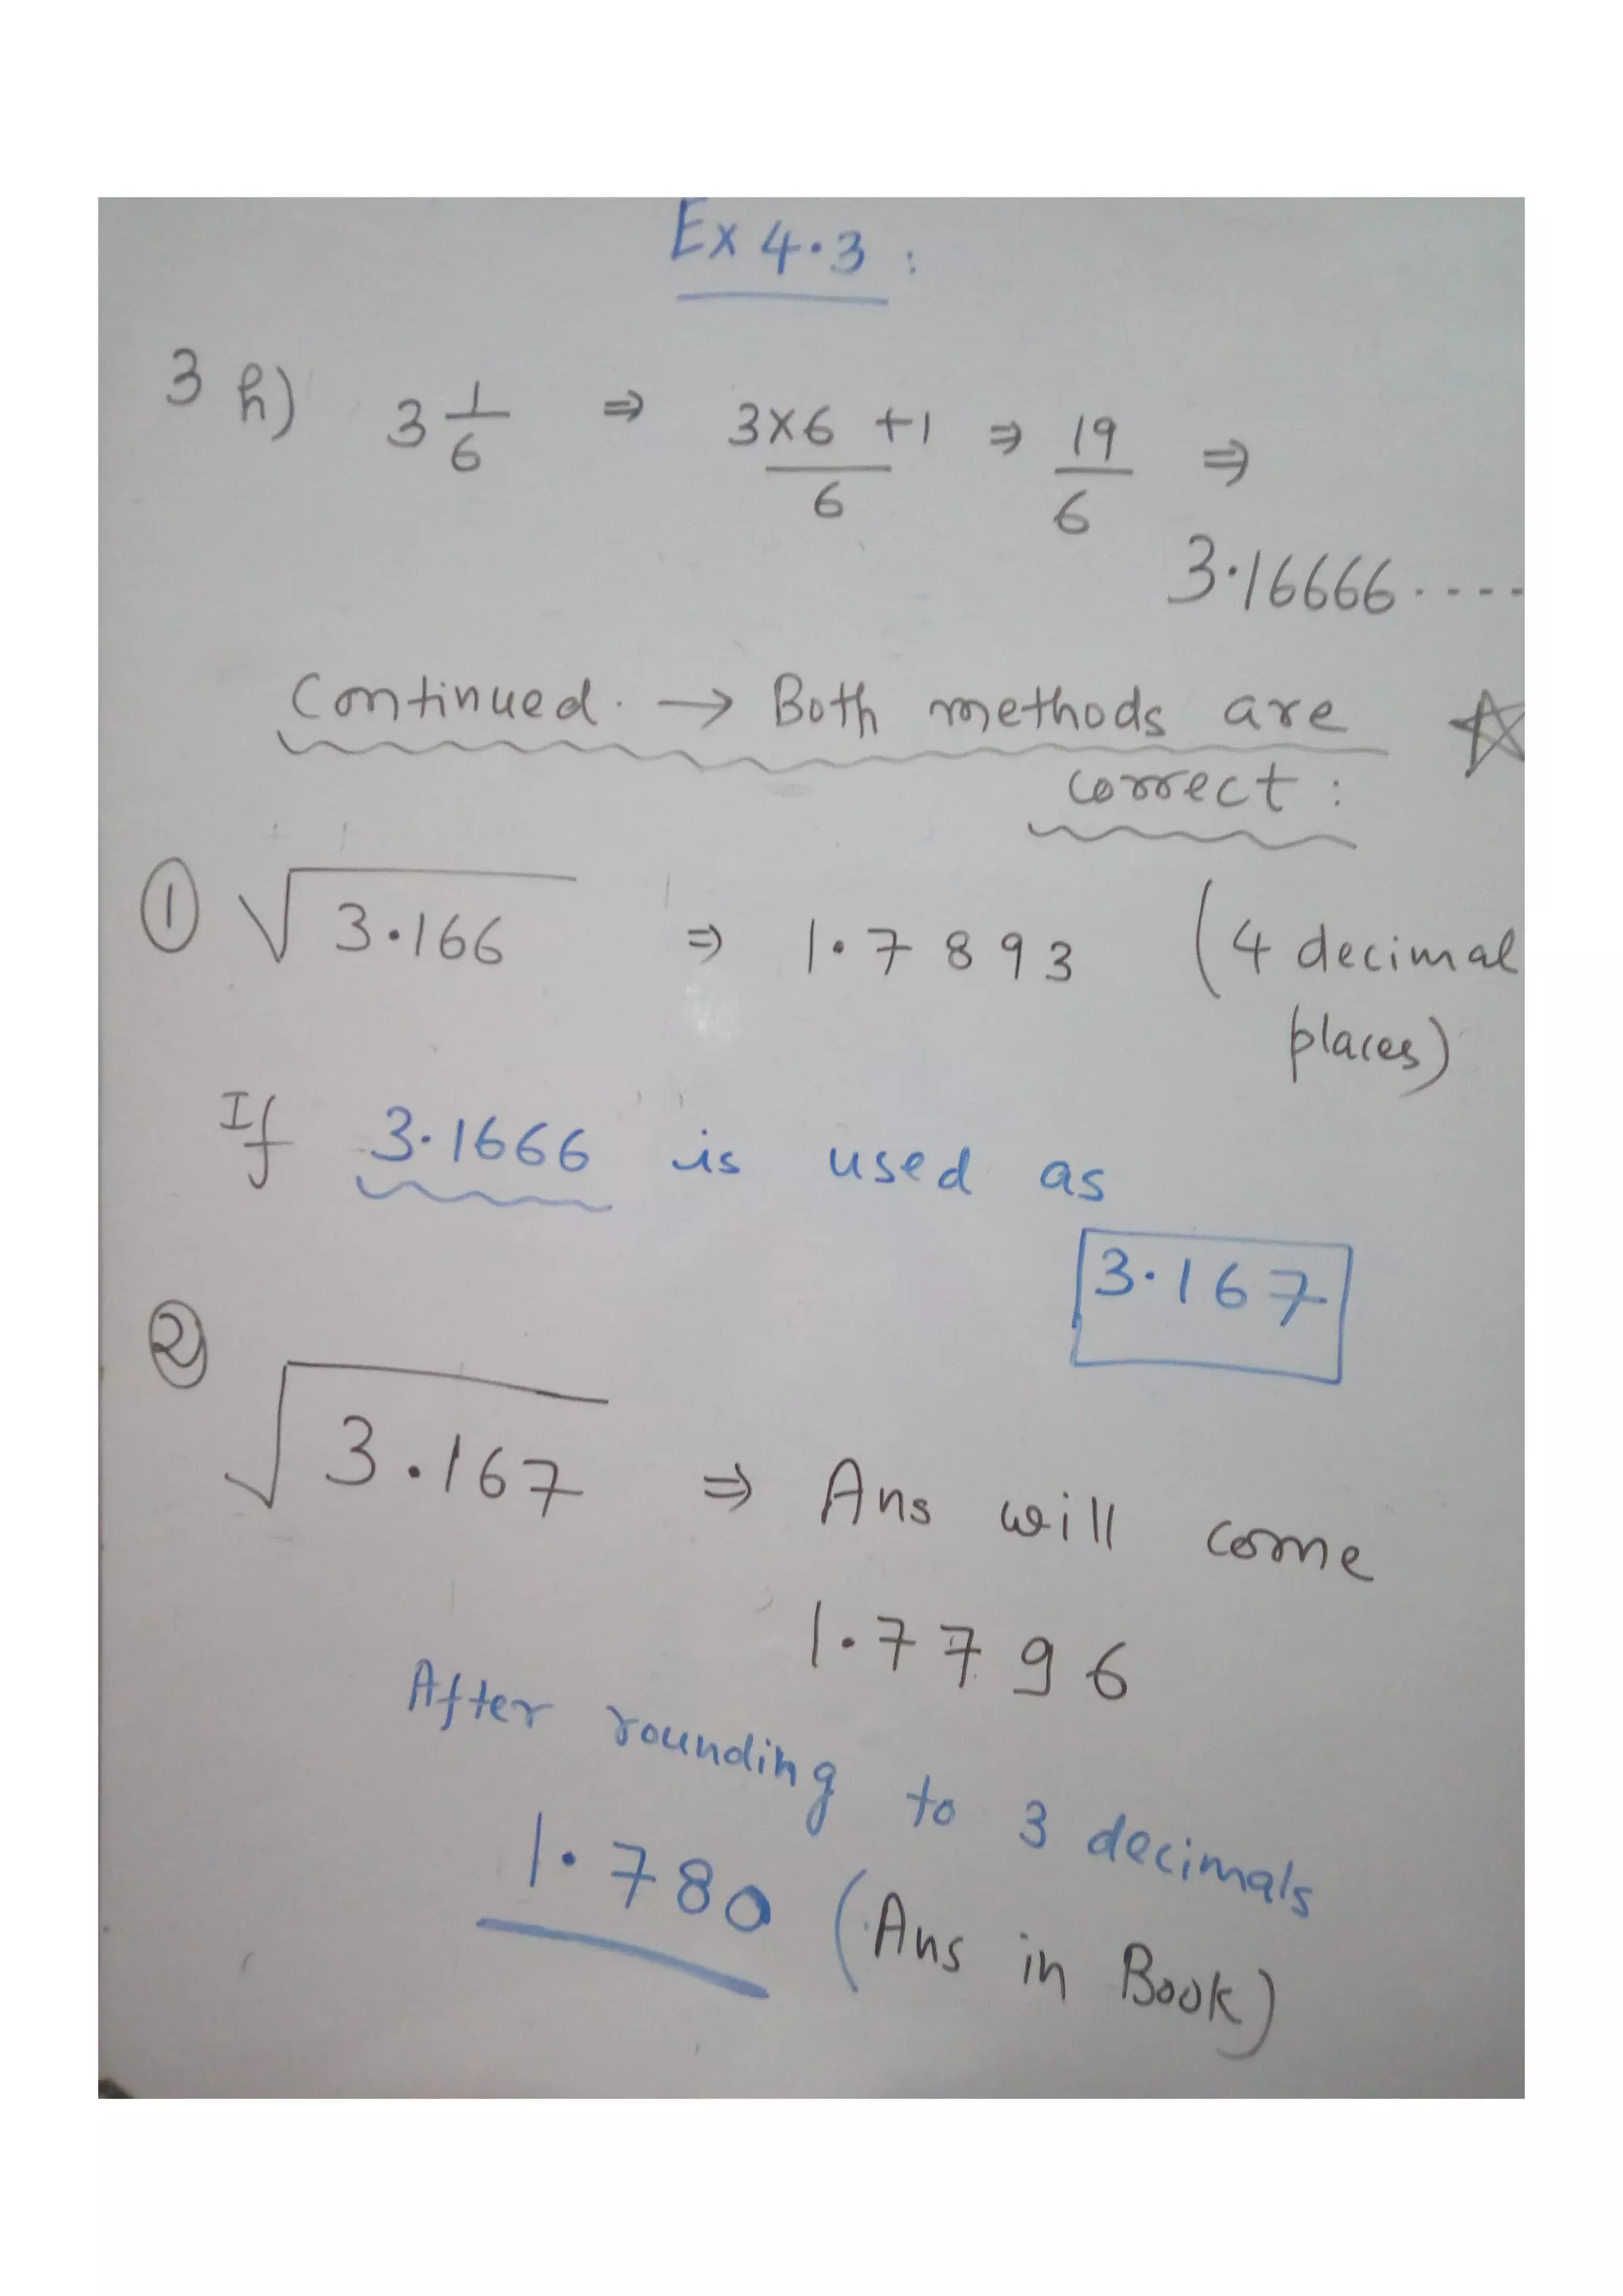 Ex 4.3 :
3 h) 3 1/6 ⇒ 3×6 +1/6 ⇒ 19/6 ⇒
3.16666....
Continued. → Both methods are
correct :
① √3.166 ⇒ 1.7893 (4 decimal
places)
If 3.1666 is used as
3.167
②
√3.167 ⇒ Ans will come
1.7796
After rounding to 3 decimals
1.780 (Ans in Book)